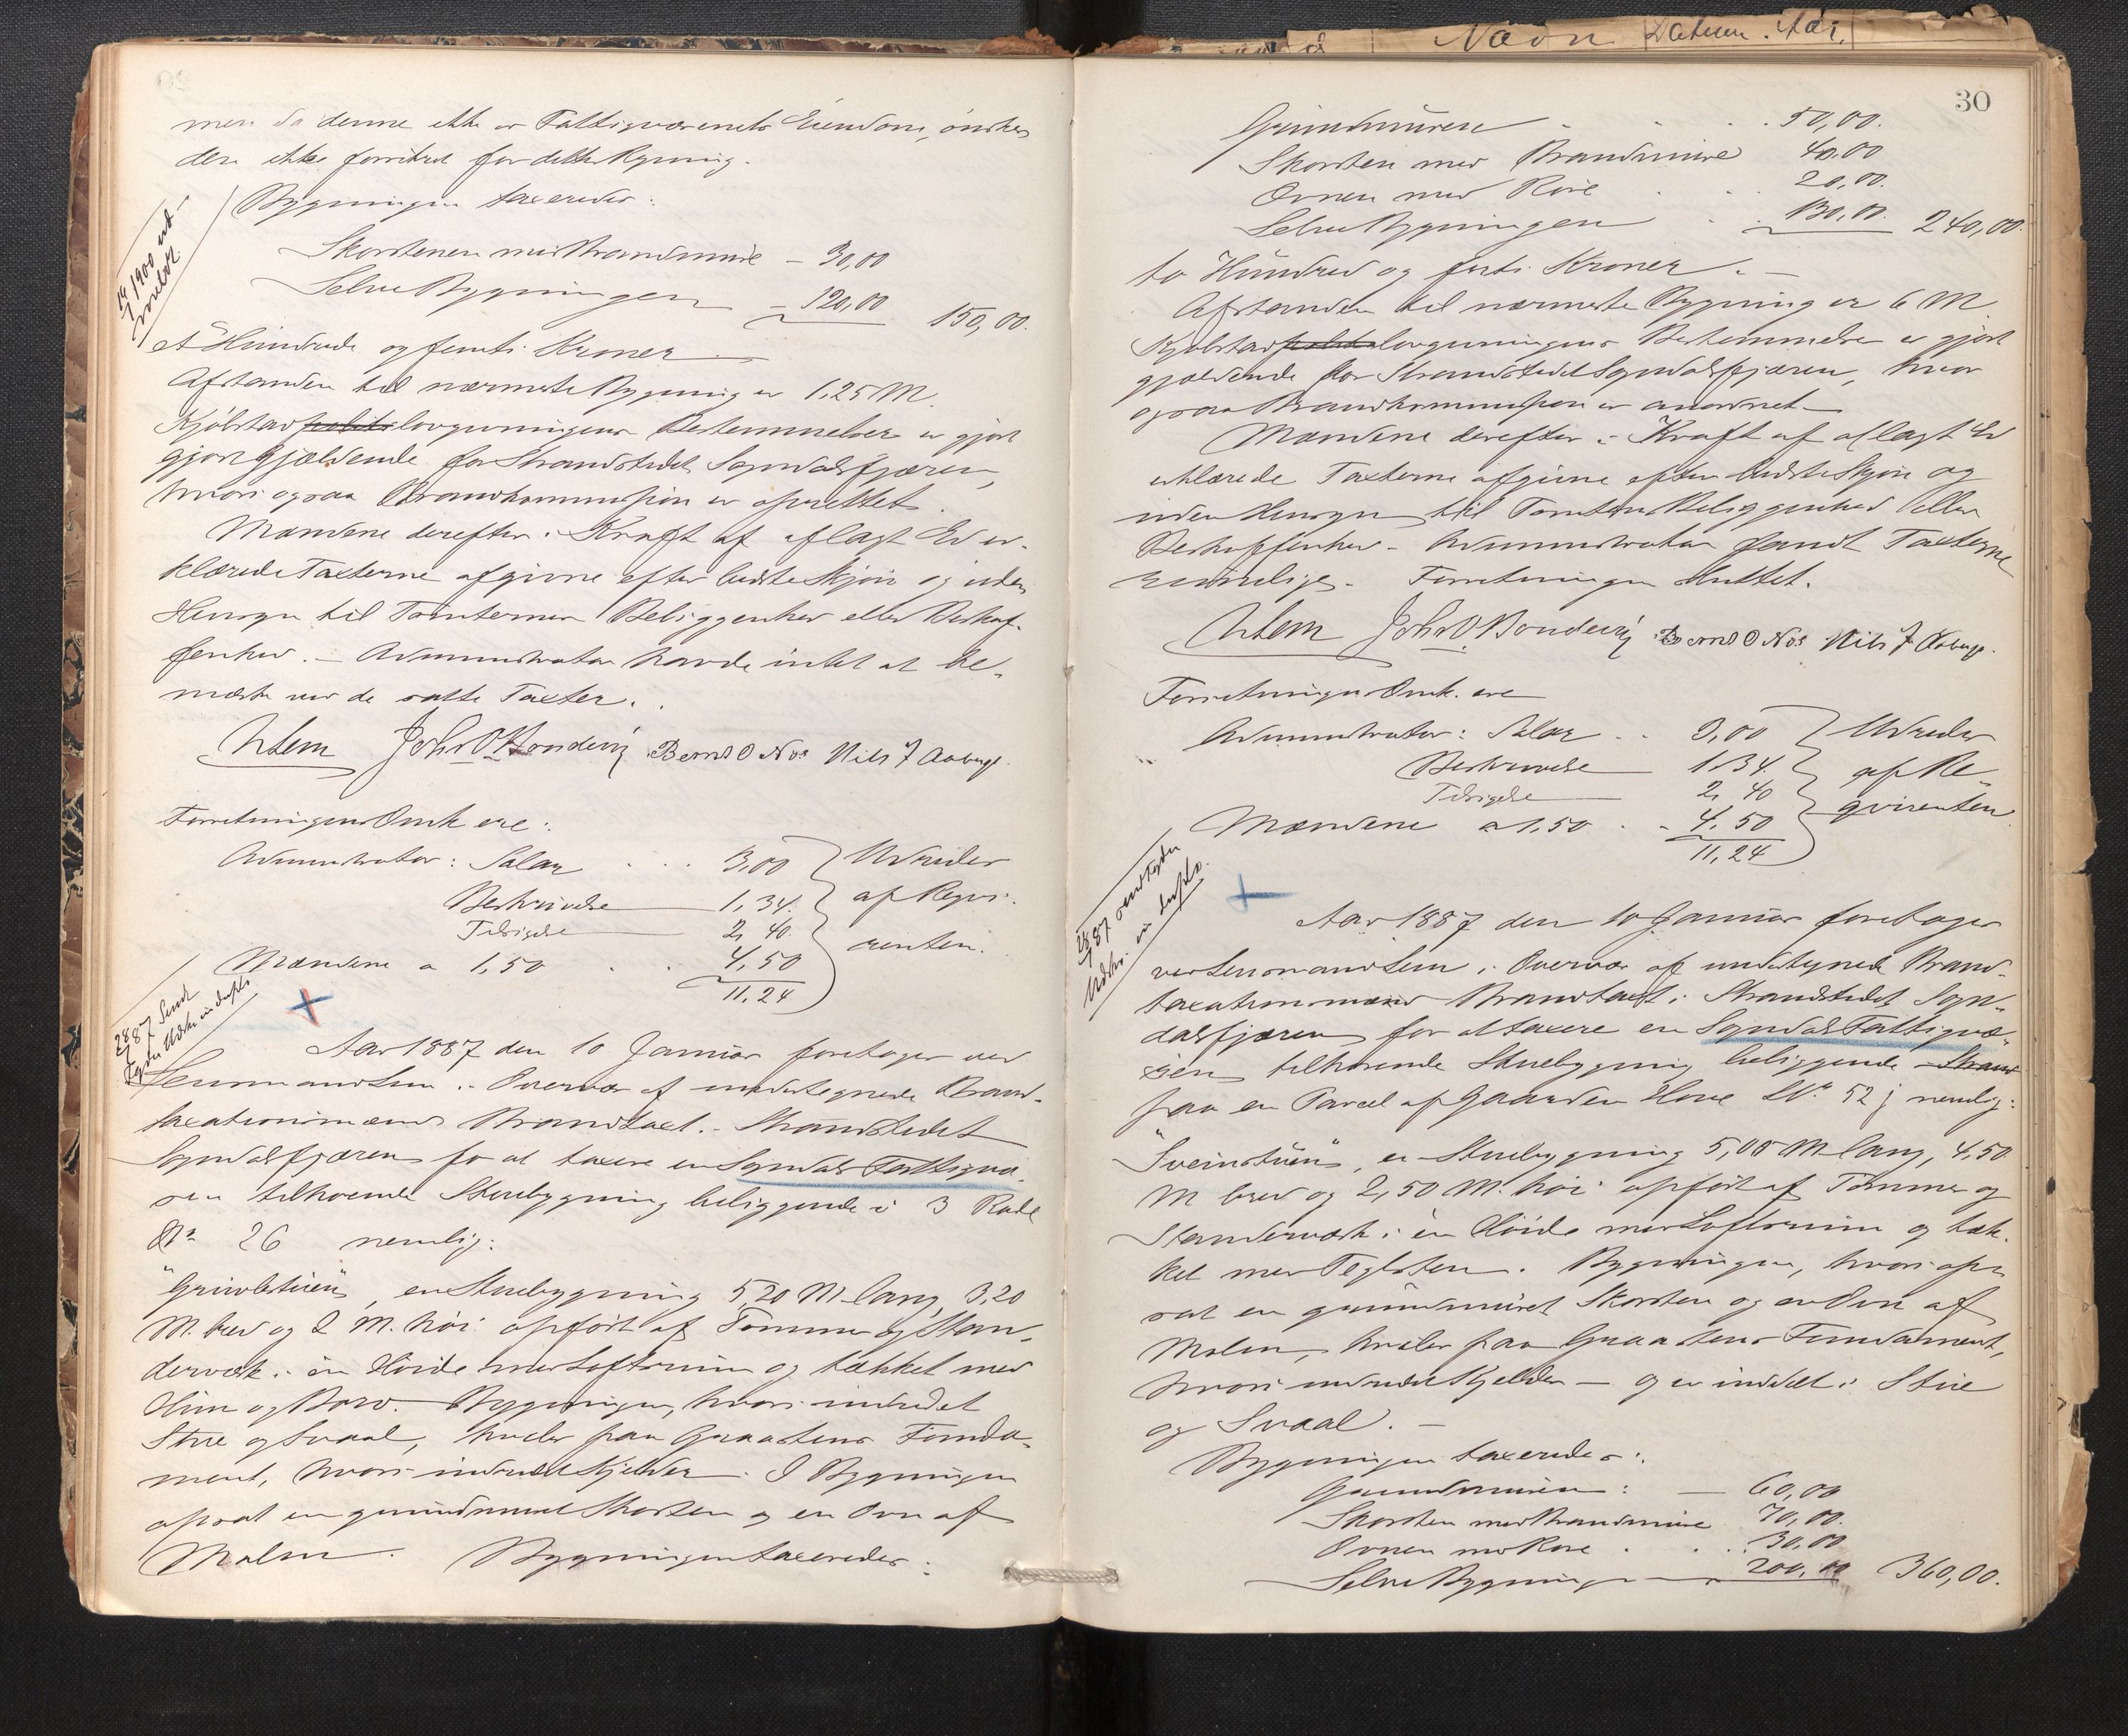 men da denne ikke er Fattigvæsenets Eiendom, ønskes
den ikke forsikret for dettes Regning.
Bygningen taxeredes:
Skorstenen med Brandmure – 30,00
Selve Bygningen – 120,00 150,00.
et Hundrede og femti Kroner
Afstanden til nærmeste Bygning er 1,25 M.
Kjøbstadlovgivningens Bestemmelser er gjort
gjort gjældende for Strandstedet Sogndalsfjæren,
hvori ogsaa Brandkommission er oprettet.
Mændene derefter i Kraft af aflagt Ed er-
klærede Taxterne afgivne efter bedste Skjøn og uden
Hensyn til Tomternes Beliggenhed eller Beskaf-
fenhed. – Administrator havde intet at be-
mærke ved de satte Taxter.
John O Bondevig Bernt O Nos Nils J Aaberge
Forretningens Omk ere:
Administrator: Salær 3,00
Beskrivelse 1,34.
Tilsigelse 2,40.
Mændene a 1,50 4,50
11,24
Udredes
af Reqvi-
renten.
14/7 1900 ud-
28/1 87 Sendt
Aar 1887 den 10 Januar foretoges ved
Lensmand Lem i Overvær af undertegnede Brand-
taxationsmænd Brandtaxt i Strandstedet
Sogndalsfjæren for at taxere en Sogndals Fattigvæ-
sen tilhørende Stuebygning beliggende i 3 Rode
No 26 nemlig:
en Stuebygning 5,20 M. lang, 3,20
M. bred og 2 M. høi opført af Tømmer og Stan-
derværk i en Høide med Loftsrum og tækket med
Hun og Bord. Bygningen, hvori indredet
Stue og Svaal, hviler paa Graastens Funda-
ment, hvori indredet Kjelder. I Bygningen
opsat en grundmuret Skorsten og en Ovn af
Malm. Bygningen taxeredes:
Nævn Datum. Aar.
30
Grundmuren 50,00.
Skorsten med Brandmure 40,00
Ovnen med Røre 20,00.
Selve Bygningen 130,00. 240,00.
to Hundred og forti Kroner. –
Afstanden til nærmeste Bygning er 6 M.
Kjøbstadlovgivningens Bestemmelser er gjort
gjældende for Strandstedet Sogndalsfjæren, hvor
ogsaa Brandkommission er anordnet –
Mændene derefter i Kraft af aflagt Ed
erklærede Taxterne afgivne efter bedste Skjøn og
uden Hensyn til Tomtens Beliggenhed eller
Beskaffenhed – Administrator fandt Taxterne
rimelige. Forretningen sluttet.
John O. Bondevig Bernt O Nos Nils J Aaberge.
Forretningens Omk. ere
Administrator: Salær 3,00
Beskrivelse 1,34.
Tilsigelse 2,40
Mændene a 1,50 4,50
11,24
Udredes
af Re-
qvirenten
Aar 1887 den 10 Januar foretoges
ved Lensmand Lem i Overvær af undertegnede Brand-
taxationsmænd Brandtaxt i Strandstedet Sogn-
dalsfjæren for at taxere en Sogndals Fattigvæ-
sen tilhørende Stuebygning beliggende Strand
paa en Parcel af Gaarden Hove LNo 52 j nemlig:
"Sveinstuen", en Stuebygning 5,08 M. lang, 4,50
M bred og 2,50 M. høi opført af Tømmer og
Standerværk i en Høide med Loftsrum og tæk-
ket med Teglsten. Bygningen, hvori op-
sat en grundmuret Skorsten og en Ovn af
Malm, hviler paa Graastens Fundament,
hvori indredet Kjelder – og er inddelt i Stue
og Svaal. –
Bygningen taxeredes:
Grundmuren: – 60,00
Skorsten med Brandmure 70,00.
Ovnen med Røre 30,00
Selve Bygningen 200,00 360,00.